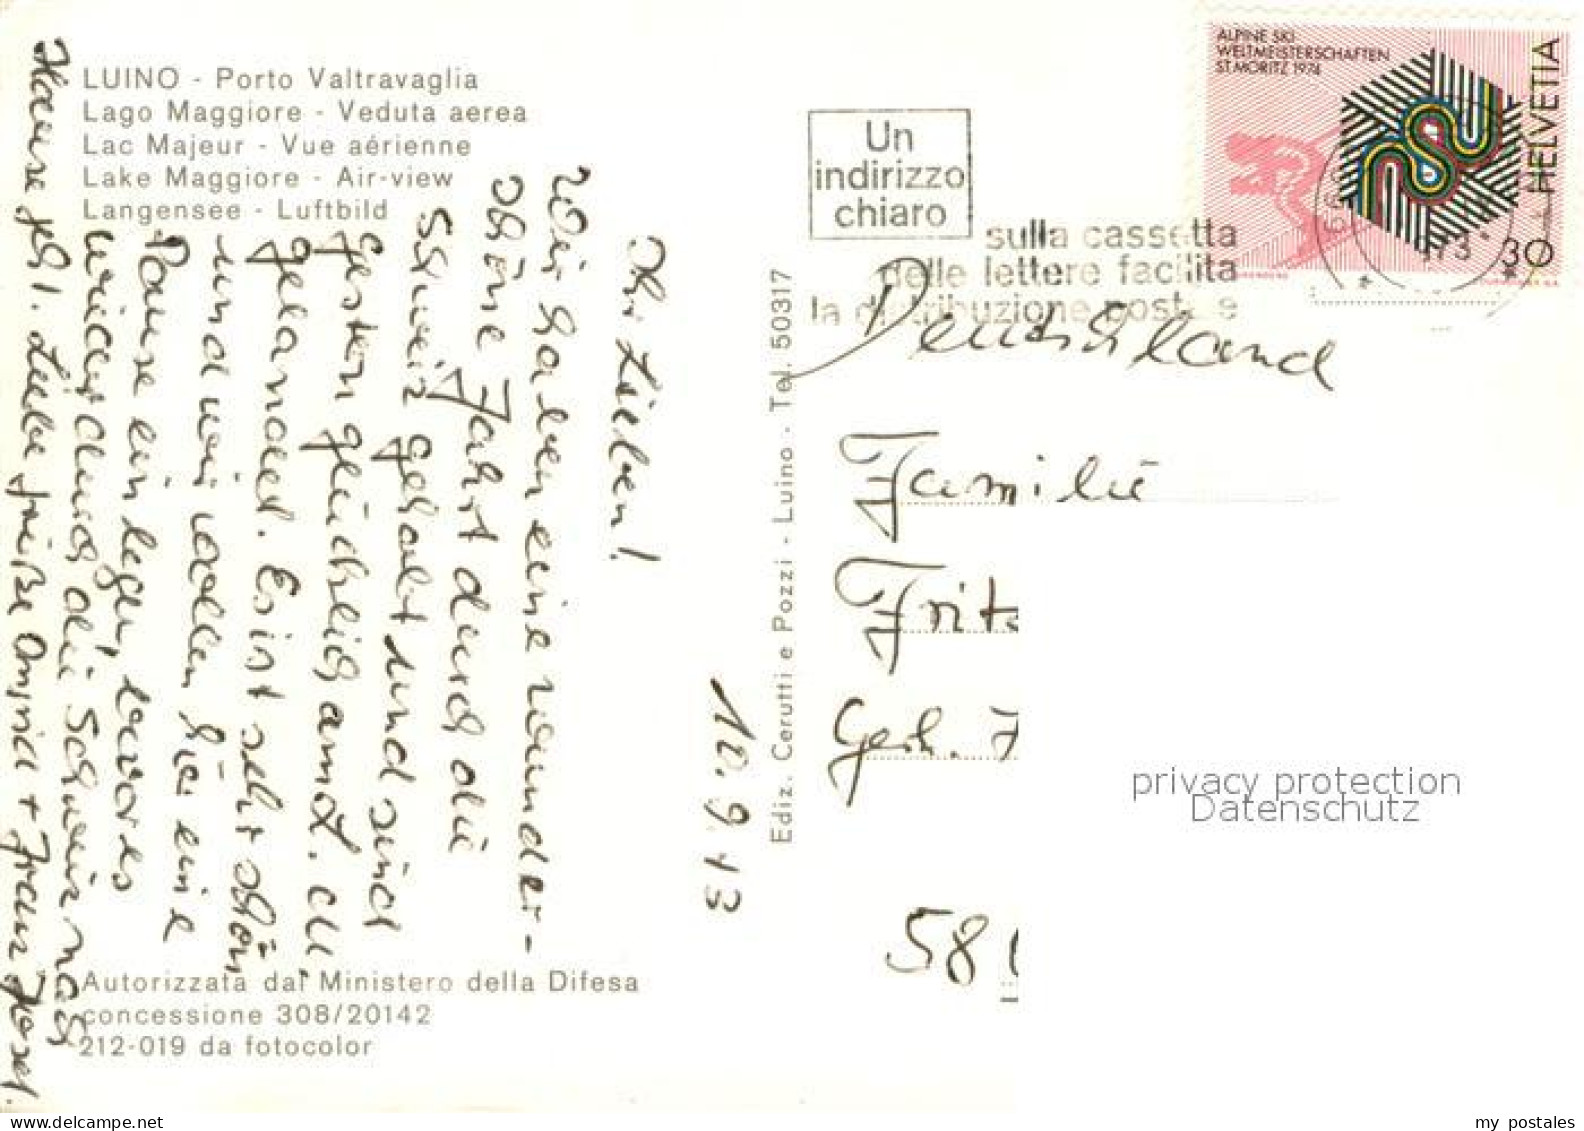 LUINO - Porto Valtravaglia
Lago Maggiore - Veduta aerea
Lac Majeur - Vue aérienne
Lake Maggiore - Air-view
Langensee - Luftbild
Ihr Lieben!
Wir haben eine wunder-
schöne Fahrt durch die
Schweiz gehabt und sind
gestern glücklich am L. M.
gelandet. Es ist sehr schön
und wir wollen hier eine
Pause einlegen, bevor es
wieder durch die Schweiz nach
Hause geht. Liebe Grüße + Franz Josef.
10.9.73
Autorizzata dal Ministero della Difesa
concessione 308/20142
212-019 da fotocolor
Ediz. Cerutti e Pozzi - Luino - Tel. 50317
Un
indirizzo
chiaro
sulla cassetta
delle lettere facilita
la distribuzione postale
ALPINE SKI
WELTMEISTERSCHAFTEN
ST. MORITZ 1974
HELVETIA
30
73
Deutschland
Familie
Frit
Gerh.
58
privacy protection
Datenschutz
my postales